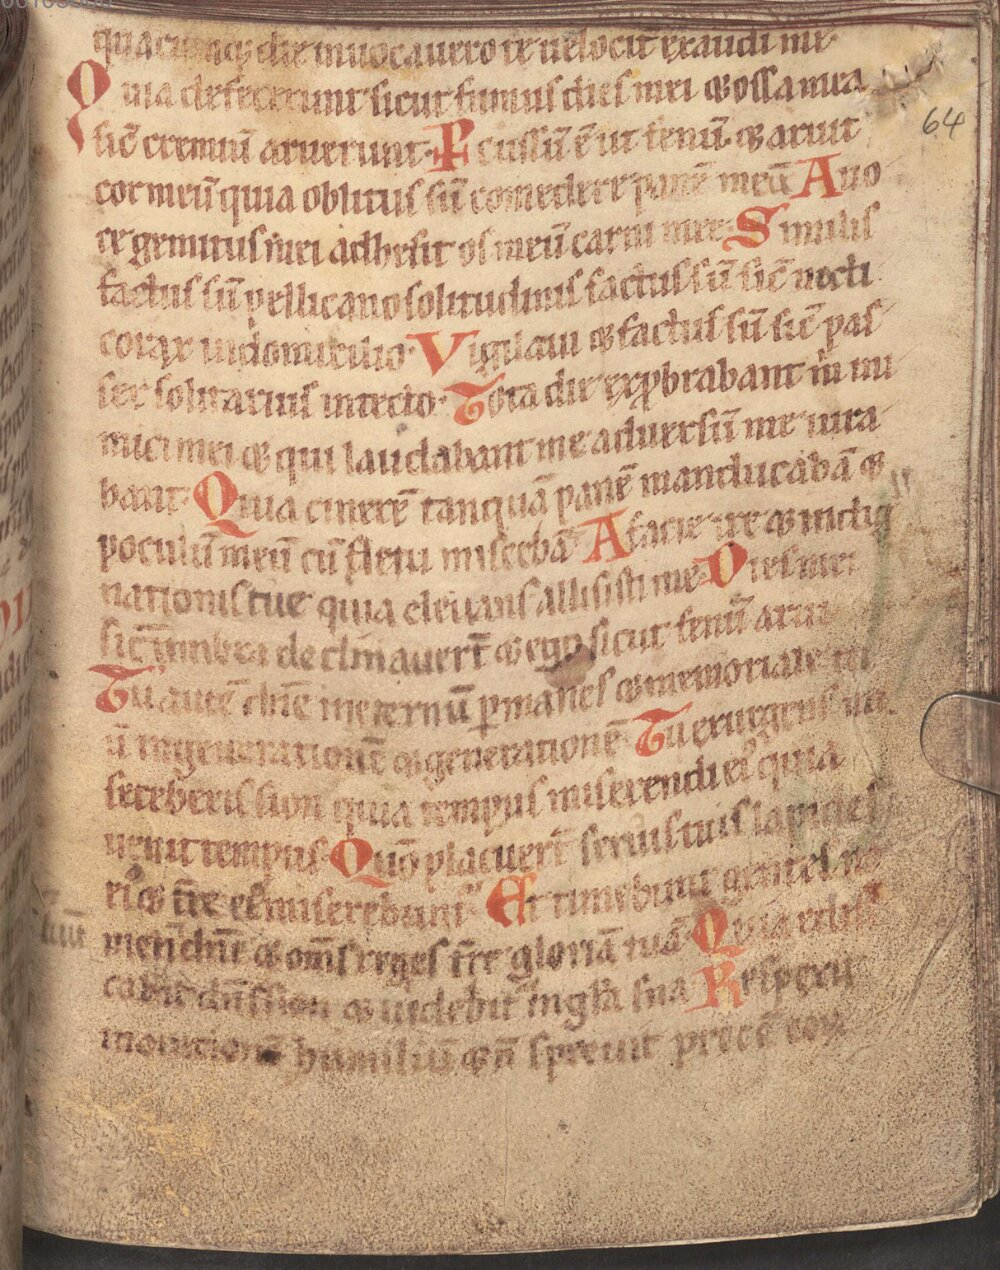 quacumq; die invocavero te velocit exaudi me
Quia defecerunt sicut fumus dies mei & ossa mea
sic̄ cremiū aruerunt. Pcussū ē ut fenū & aruit
cor meū quia oblitus sū comedere panē meū A uo
ce gemitus mei adhesit os meū carni mee. Similis
factus sū pellicano solitudinis factus sū sic̄ nocti
corax in domicilio. Vigilaui & factus sū sic̄ pas
ser solitarius in tecto. Tota die exprobrabant m̄ ini
mici mei & qui laudabant me adversū me iura
bant. Quia cinerē tanquā panē manducabā &
poculū meū cū fletu miscebā. A facie ire & indig
nationis tue quia elevans allisisti me. Dies mei
sic̄ umbra declinauer̄t & ego sicut fenū arui
Tu autē dn̄e in eternū pmanes & memoriale tu
ū in generationē & generationē. Tu exurgens mi
sereberis sion quia tempus miserendi ei quia
venit tempus. Quō placuer̄t servis tuis lapides
ei & tr̄e ei miserebunt. Et timebunt gentes no
men dn̄e & om̄s reges tr̄e gloriā tuā. Quia edifi
cavit dn̄s sion & videbit in gl̄a sua Respexit
in orationē humiliū & n̄ sprevit precē eoꝝ
64